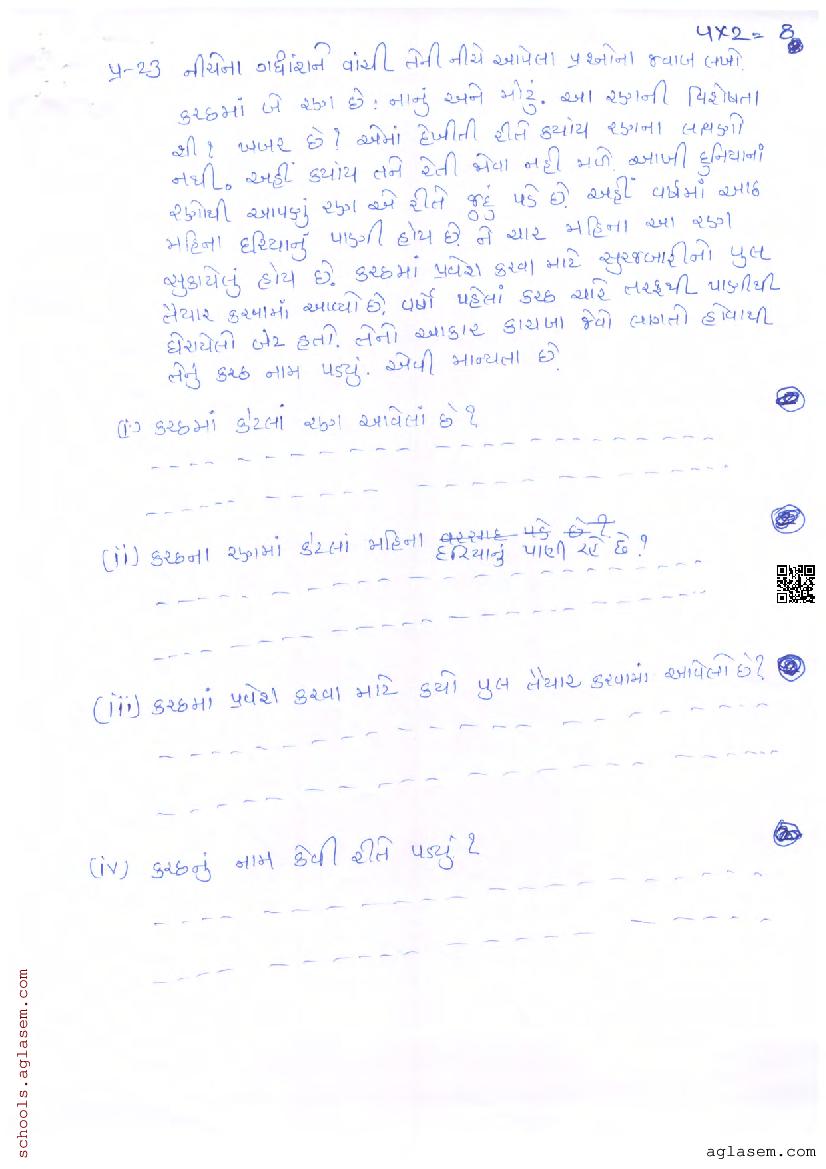 4x2= 8
પ્ર-23 નીચેના ગદ્યાંશને વાંચી તેની નીચે આપેલા પ્રશ્નોના જવાબ લખો.
કચ્છમાં બે રણ છે : નાનું અને મોટું. આ રણની વિશેષતા
શી? ખબર છે? એમાં દેખીતી રીતે ક્યાંય રણના લક્ષણો
નથી. અહીં ક્યાંય તને રેતી જોવા નહીં મળે. આખી દુનિયાનાં
રણોથી આપણું રણ એ રીતે જુદું પડે છે. અહીં વર્ષમાં આઠ
મહિના દરિયાનું પાણી હોય છે ને ચાર મહિના આ રણ
સુકાયેલું હોય છે. કચ્છમાં પ્રવેશ કરવા માટે સુરજબારીનો પુલ
તૈયાર કરવામાં આવ્યો છે. વર્ષો પહેલાં કચ્છ ચારે તરફથી પાણીથી
ઘેરાયેલો બેટ હતો. તેનો આકાર કાચબા જેવો લાગતો હોવાથી
તેનું કચ્છ નામ પડ્યું. એવી માન્યતા છે.
(i) કચ્છમાં કેટલાં રણ આવેલાં છે?
(ii) કચ્છના રણમાં કેટલાં મહિના વરસાદ પડે છે?
દરિયાનું પાણી રહે છે?
(iii) કચ્છમાં પ્રવેશ કરવા માટે કયો પુલ તૈયાર કરવામાં આવેલો છે?
(iv) કચ્છનું નામ કેવી રીતે પડ્યું?
schools.aglasem.com
aglasem.com